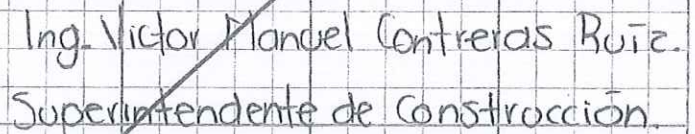 Ing. Victor Manuel Contreras Ruiz.
Superintendente de Construcción.